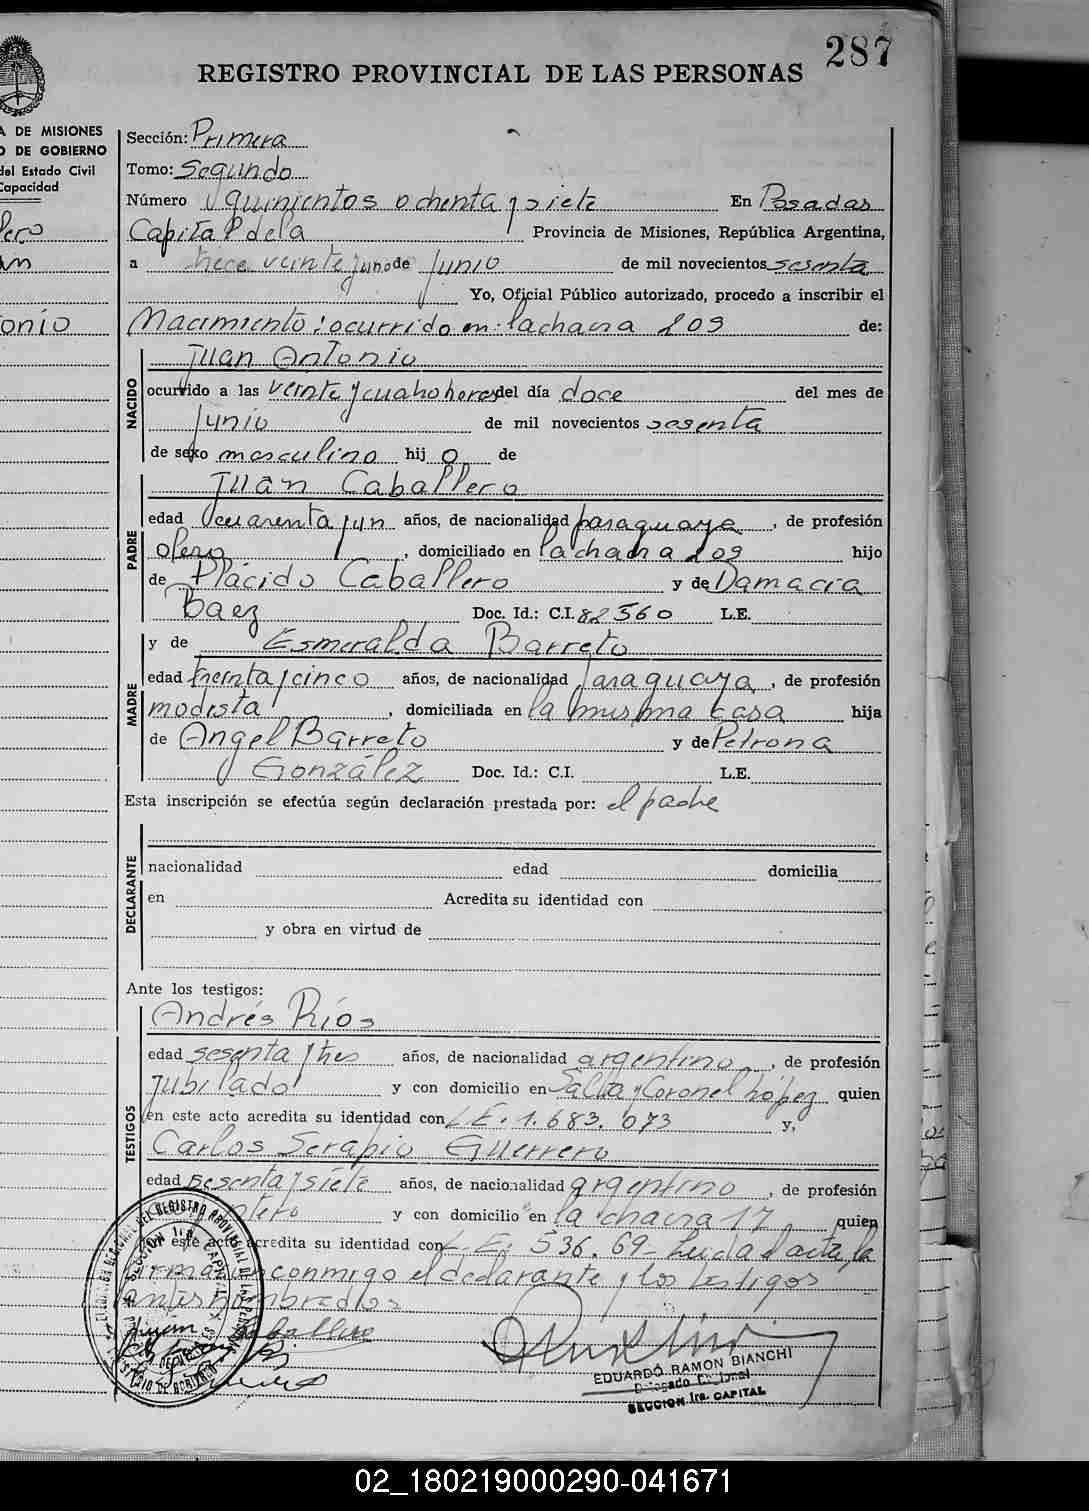 287
REGISTRO PROVINCIAL DE LAS PERSONAS
A DE MISIONES
O DE GOBIERNO
del Estado Civil
Capacidad
lero
an
onio
Sección: Primera
Tomo: Segundo
Número quinientos ochenta y siete En Posadas
Capital de la Provincia de Misiones, República Argentina,
a trece veinte y uno de Junio de mil novecientos sesenta
Yo, Oficial Público autorizado, procedo a inscribir el
Nacimiento: ocurrido en: la chacra 209 de:
NACIDO
Juan Antonio
ocurrido a las veinte y cuatro horas del día doce del mes de
Junio de mil novecientos sesenta
de sexo masculino hij o de
PADRE
Juan Caballero
edad cuarenta y un años, de nacionalidad paraguaya, de profesión
olero, domiciliado en la chacra 209 hijo
de Plácido Caballero y de Damacia
Baez Doc. Id.: C.I. 82560 L.E.
y de Esmeralda Barreto
MADRE
edad treinta y cinco años, de nacionalidad paraguaya, de profesión
modista, domiciliada en la misma casa hija
de Angel Barreto y de Petrona
González Doc. Id.: C.I. L.E.
Esta inscripción se efectúa según declaración prestada por: el padre
DECLARANTE
nacionalidad edad domicilia
en Acredita su identidad con
y obra en virtud de
Ante los testigos:
TESTIGOS
Andrés Ríos
edad sesenta y tres años, de nacionalidad argentino, de profesión
Jubilado y con domicilio en Salta y Coronel López quien
en este acto acredita su identidad con L.E. 1.683.073 y,
Carlos Serapio Guerrero
edad sesenta y siete años, de nacionalidad argentino, de profesión
y con domicilio en la chacra 17 quien
este acto acredita su identidad con L.E. 536.69- Leida el acta, la
conmigo el declarante y los testigos
antes nombrados
Caballero
EDUARDO RAMON BIANCHI
SECCION 1ra. CAPITAL
02_180219000290-041671